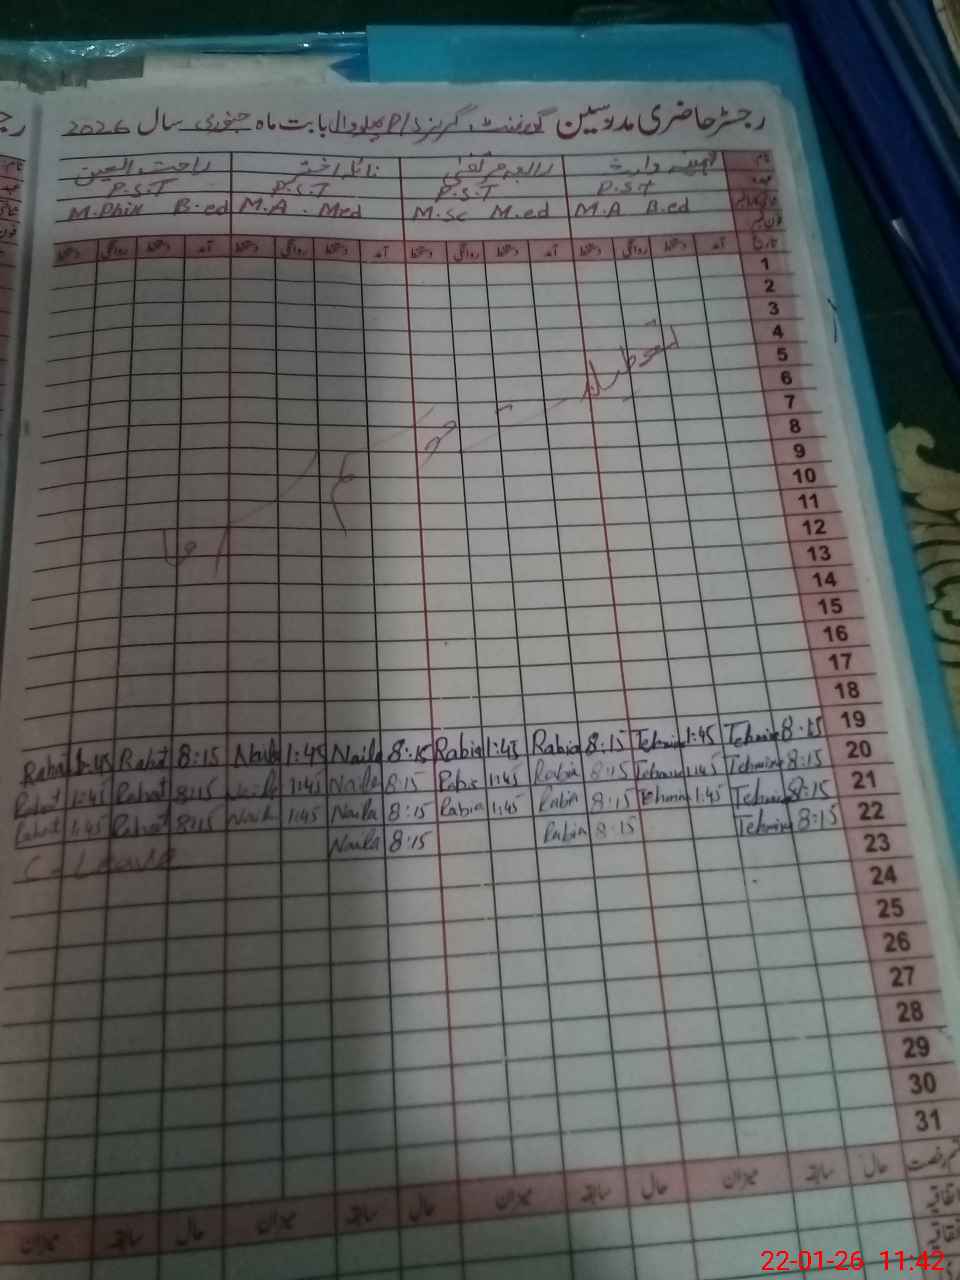 رجسٹر حاضری مدرسین گورنمنٹ گرلز P/S بابت ماہ جنوری سال 2026
نام تہمینہ نائلہ اختر راحت العین
P.S.T P.S.T P.S.T P.S.T
M.A B.ed M.Sc M.ed M.A. Med M.Phil B.ed
تاریخ آمد دستخط روانگی دستخط آمد دستخط روانگی دستخط آمد دستخط روانگی دستخط آمد دستخط روانگی دستخط
1
2
3
4
5
6
7
8
9
10
11
12
13
14
15
16
17
18
19 8:15 Tehmina 1:45 Tehmina 8:15 Rabia 1:45 Rabia 8:15 Naila 1:45 Naila 8:15 Rahat 1:45 Rahat
20 8:15 Tehmina 1:45 Tehmina 8:15 Rabia 1:45 Rabia 8:15 Naila 1:45 Naila 8:15 Rahat 1:45 Rahat
21 8:15 Tehmina 1:45 Tehmina 8:15 Rabia 1:45 Rabia 8:15 Naila 1:45 Naila 8:15 Rahat 1:45 Rahat
22 8:15 Tehmina 8:15 Rabia 8:15 Naila C-Leave
23
24
25
26
27
28
29
30
31
قسم رخصت حال سابقہ میزان حال سابقہ میزان حال سابقہ میزان حال سابقہ میزان
اتفاقیہ
22-01-26 11:42